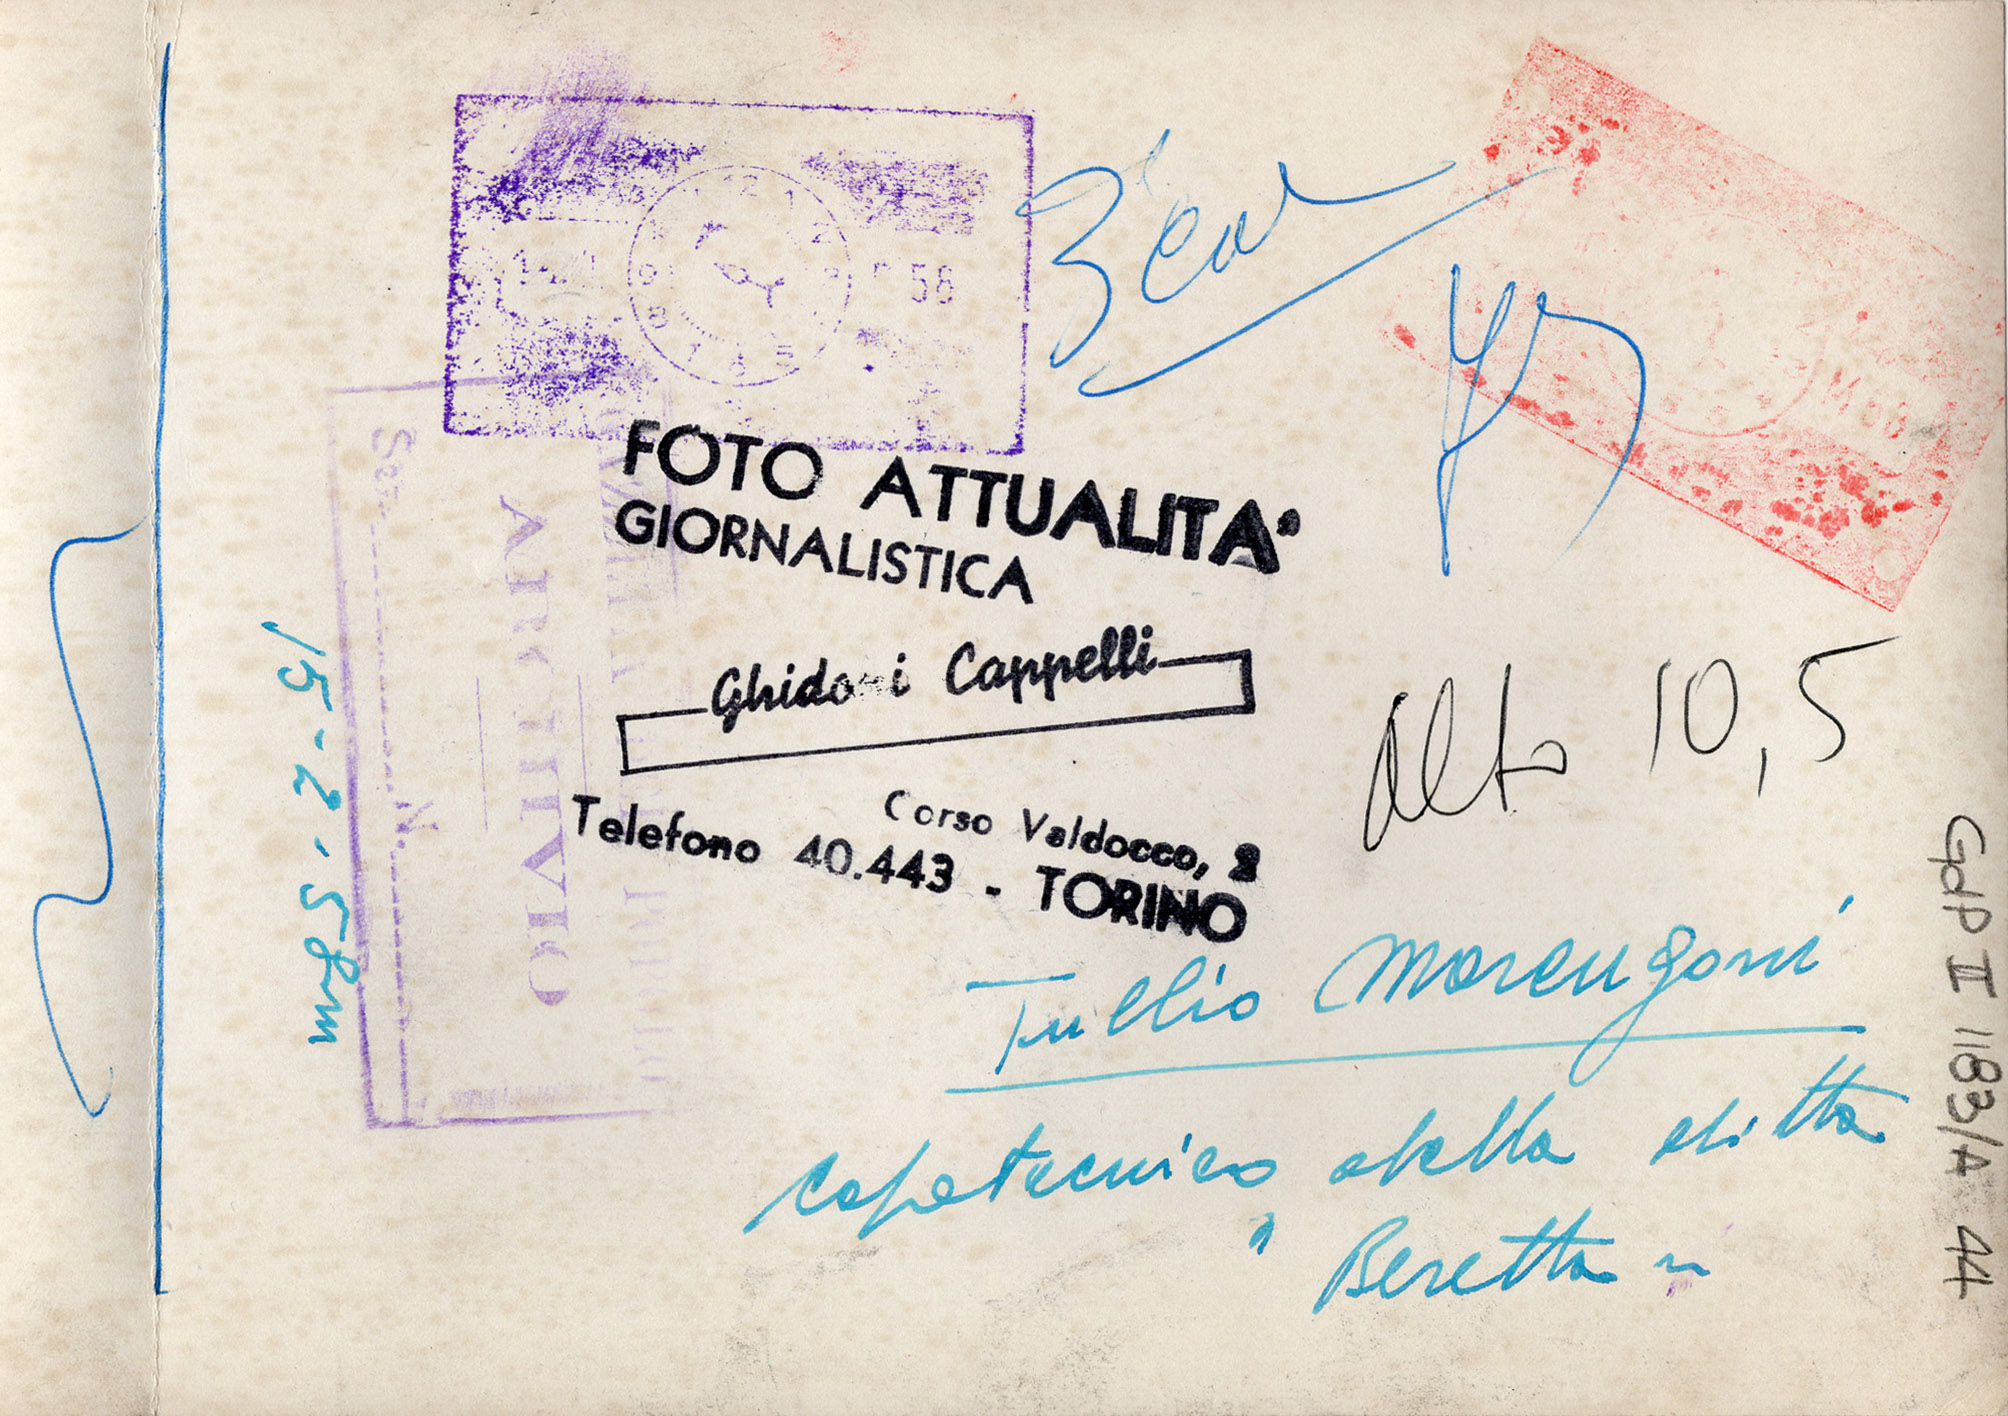 12 1 2
9
8 7 6 5
58
3 col
Mo8
FOTO ATTUALITA'
GIORNALISTICA
Ghidoni Cappelli
Corso Valdocco, 2
Telefono 40.443 - TORINO
alto 10,5
Tullio Marengoni
capotecnico della ditta
" Beretta "
15-2-59
ARCHIVIO
Sez.
N.
GdP II 1183/A 44